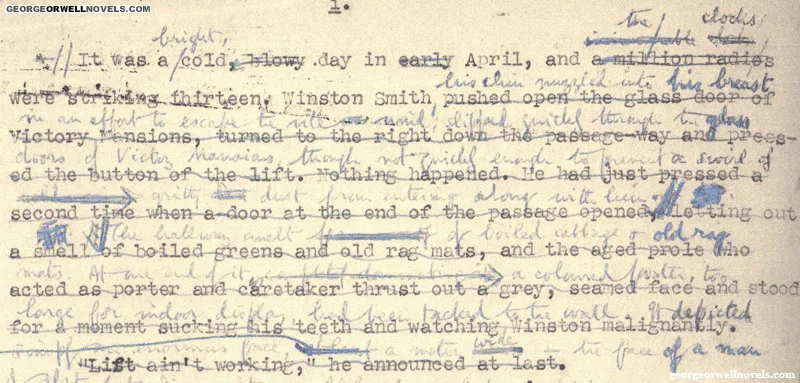 GEORGEORWELLNOVELS.COM
1.
the clocks
bright,
It was a cold, blowy day in early April, and a million radios
his chin nuzzled into his breast
were striking thirteen. Winston Smith pushed open the glass door of
in an effort to escape the vile wind, slipped quickly through the glass
Victory Mansions, turned to the right down the passage-way and press-
doors of Victory Mansions, though not quickly enough to prevent a swirl of
ed the button of the lift. Nothing happened. He had just pressed a
gritty dust from entering along with him.
second time when a door at the end of the passage opened, letting out
The hallway smelt of boiled cabbage & old rag
a smell of boiled greens and old rag mats, and the aged prole who
mats. At one end of it, a coloured poster, too
acted as porter and caretaker thrust out a grey, seamed face and stood
large for indoor display, had been tacked to the wall. It depicted
for a moment sucking his teeth and watching Winston malignantly.
simply an enormous face, a metre wide the face of a man
"Lift ain't working," he announced at last.
georgeorwellnovels.com